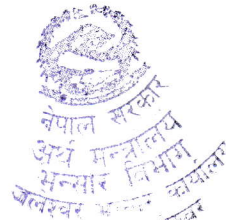 नेपाल सरकार
अर्थ मन्त्रालय
भन्सार विभाग
भन्सार कार्यालय